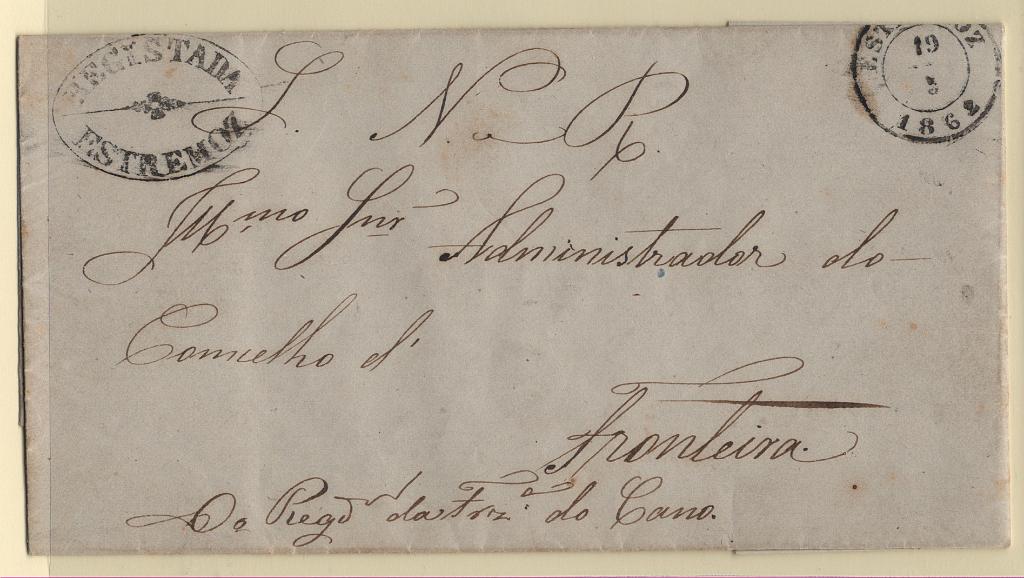 REGISTADA
ESTREMOZ
ESTREMOZ
19
3
1862
S. N. R.
Illmo Snr Administrador do
Concelho d'
Fronteira.
Do Regdr da Frza do Cano.